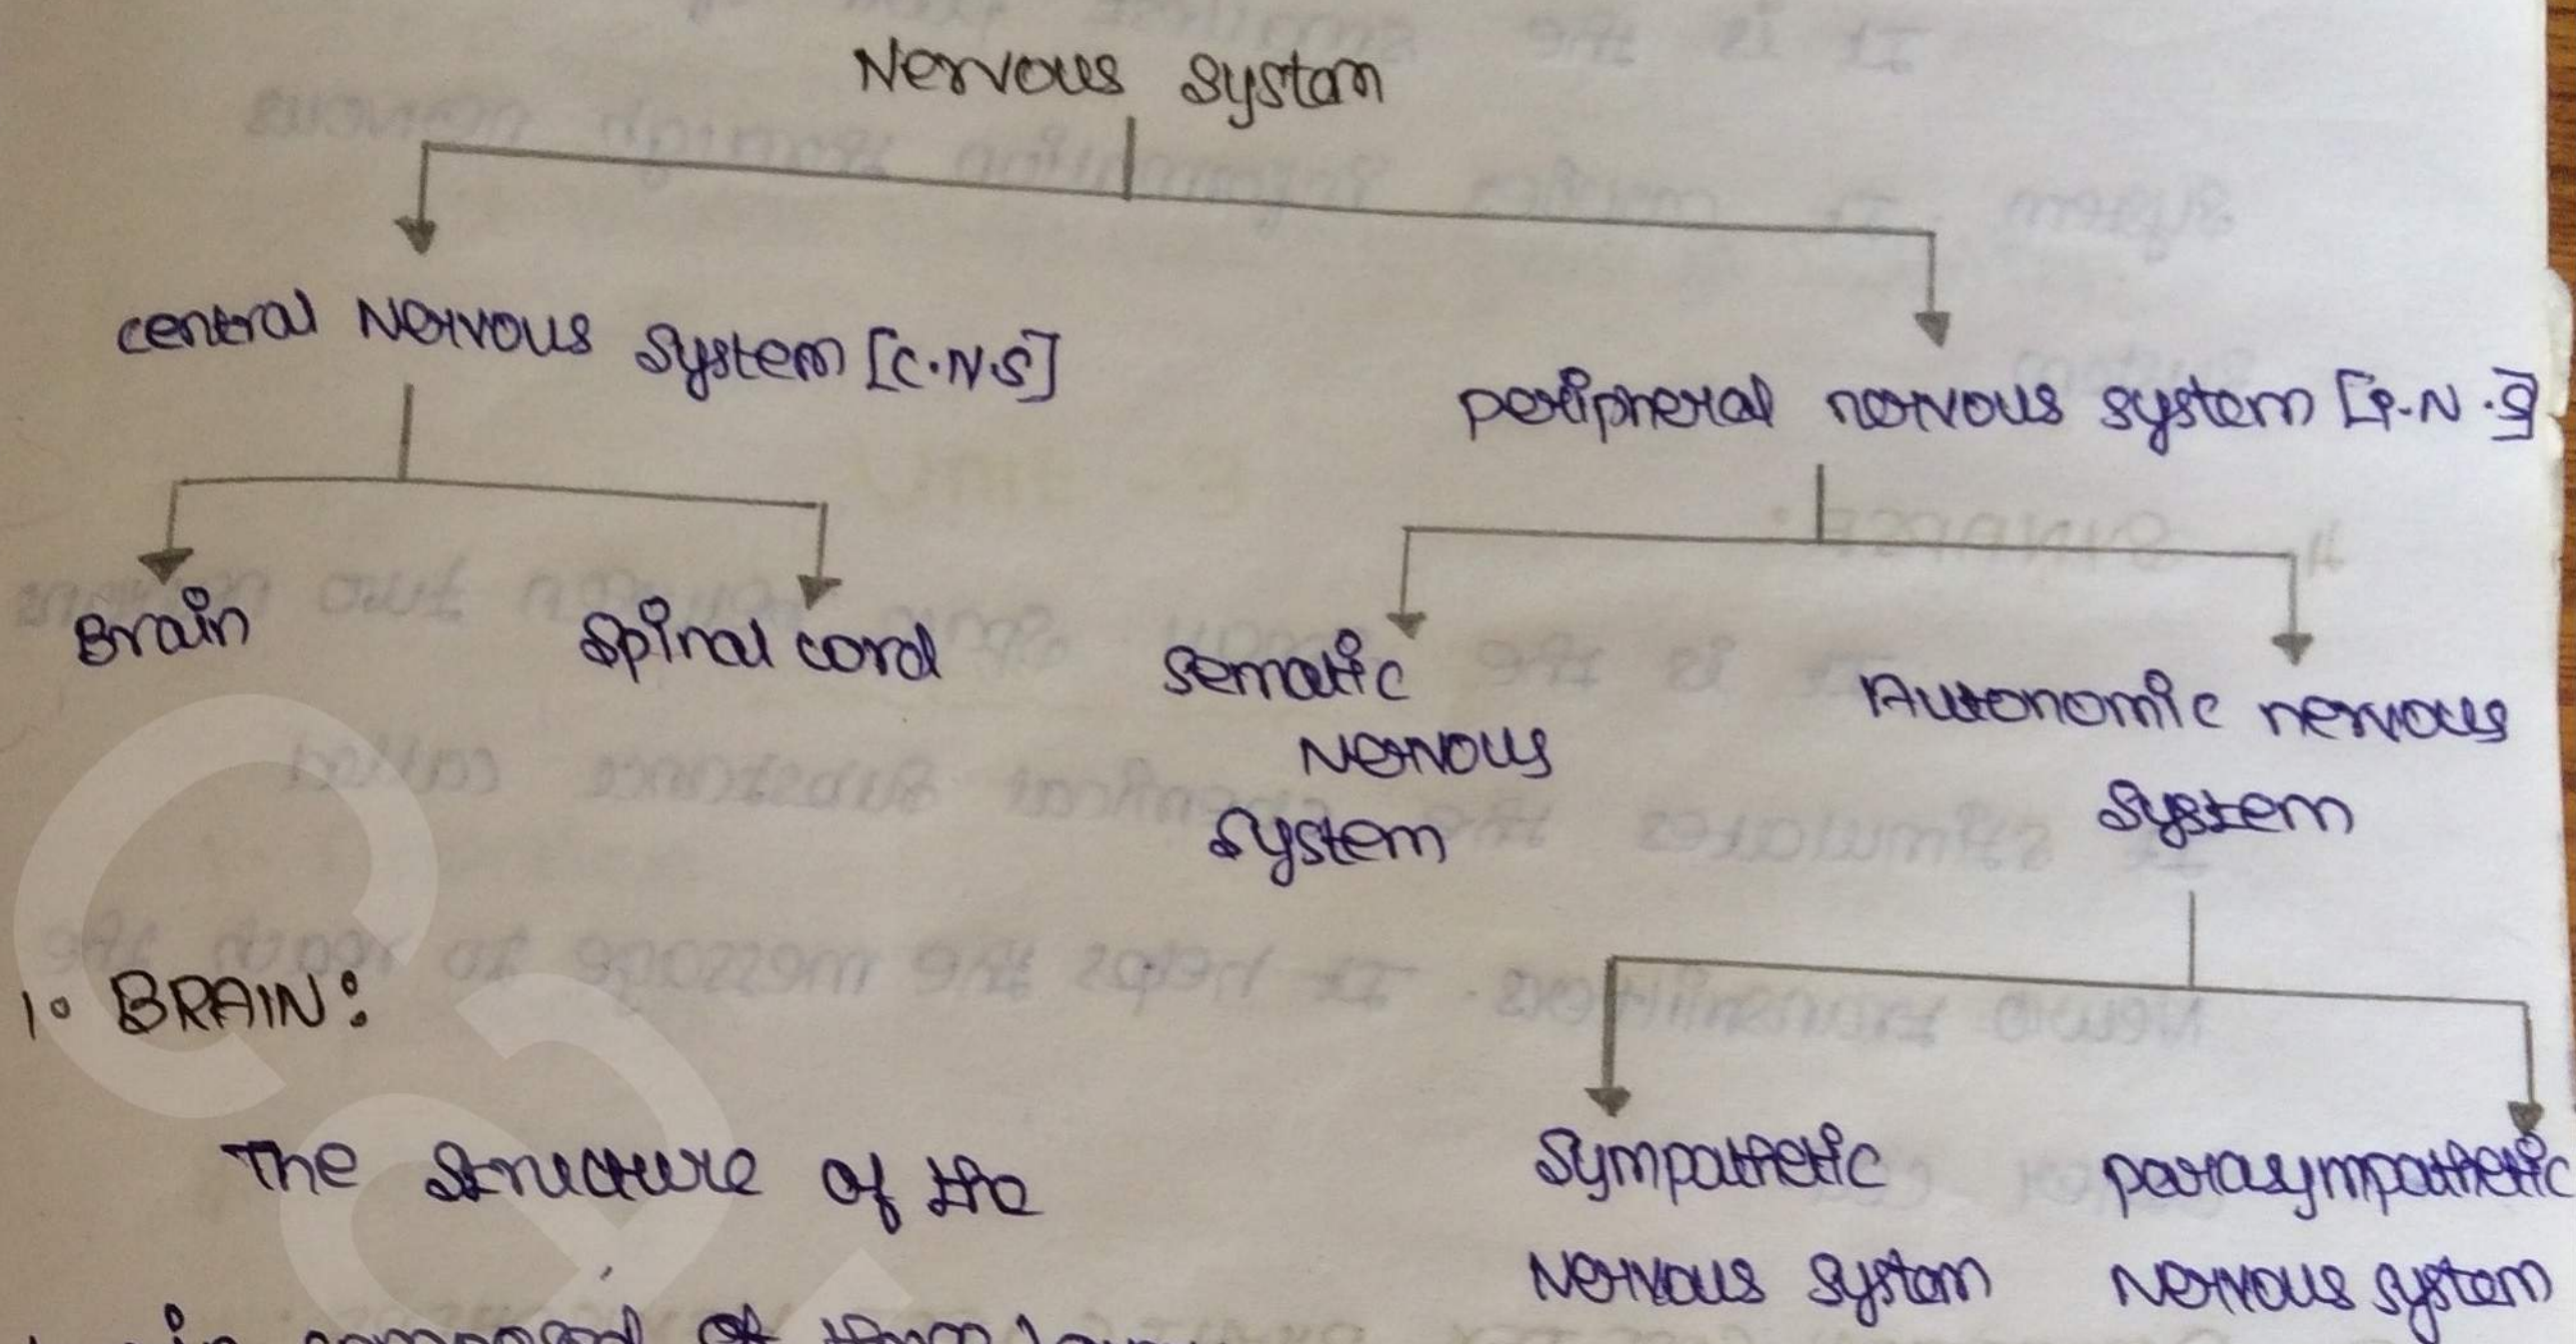 Nervous system
central Nervous system [C.N.S]
peripheral nervous system [P.N.S]
Brain
spinal cord
sematic
Nervous
system
Autonomic nervous
system
1. BRAIN:
The structure of the
sympathetic
Nervous system
parasympathetic
Nervous system
composed of three